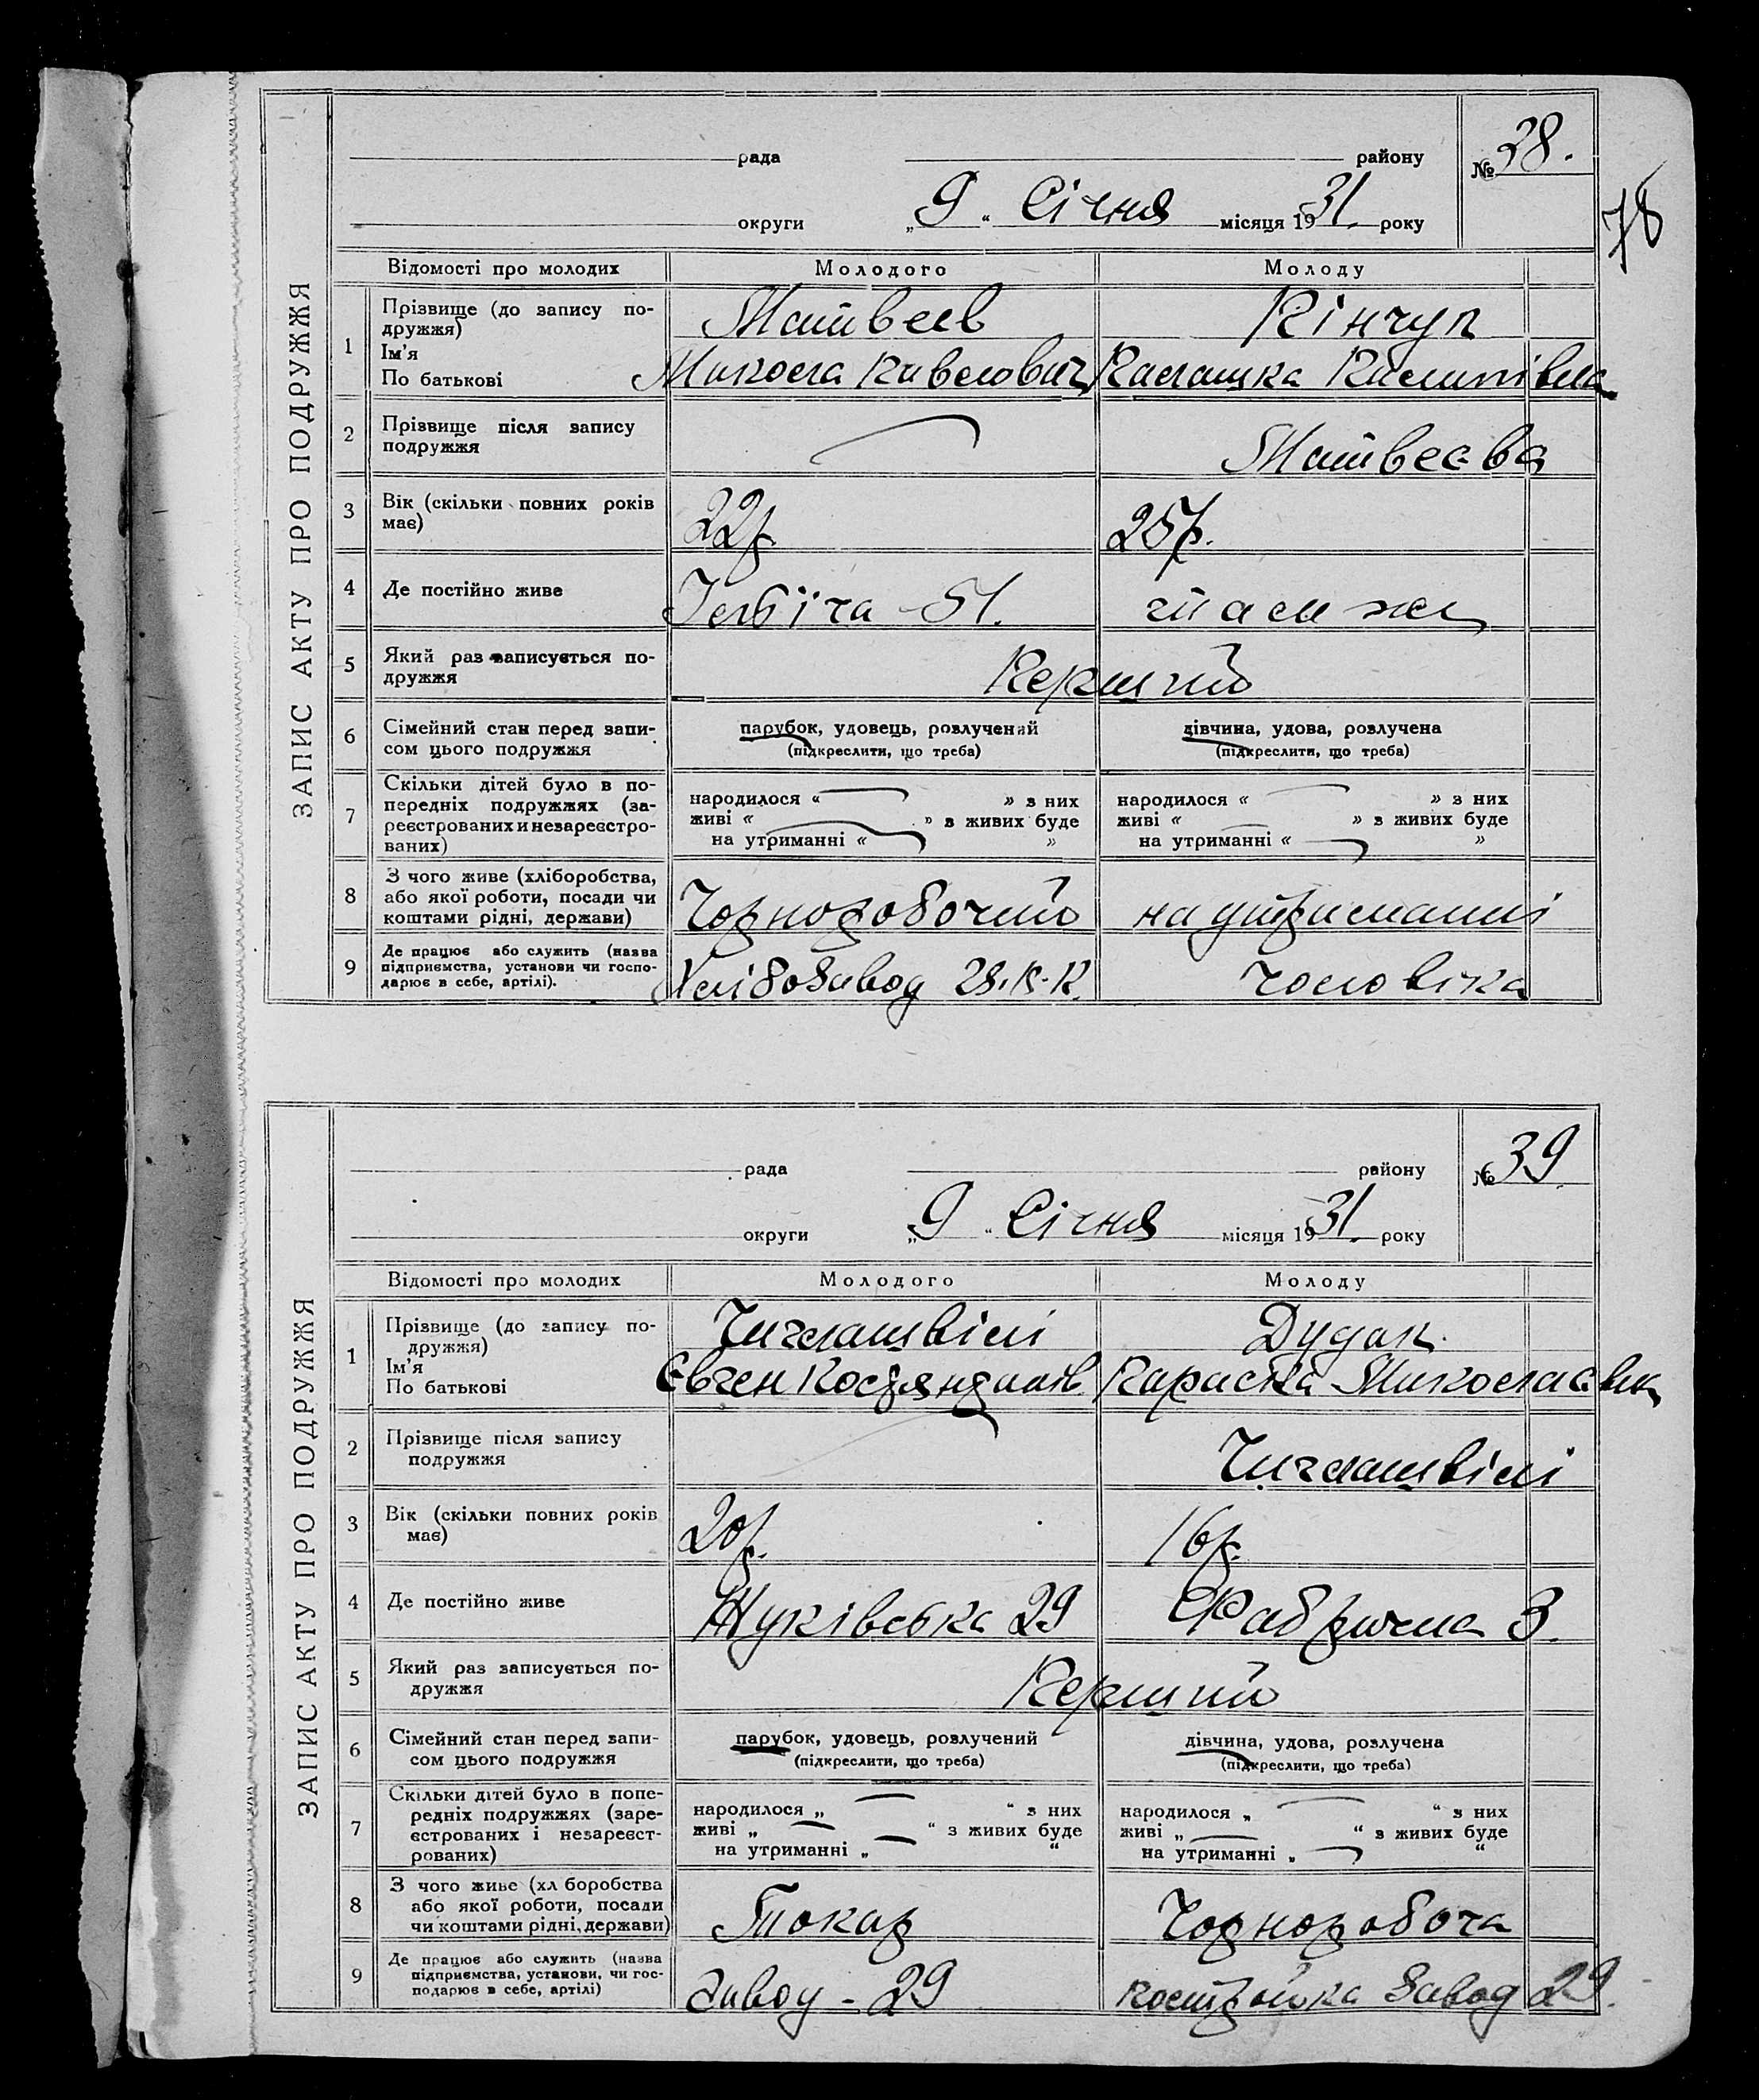 ЗАПИС АКТУ ПРО ПОДРУЖЖЯ
рада району № 38.
округи „9“ Січня місяця 1931. року
78
Відомості про молодих Молодого Молоду
1 Прізвище (до запису по-
дружжя) Матвеєв
Ім'я
По батькові Микола
2 Прізвище після запису
подружжя Матвеєва
3 Вік (скільки повних років
має) 22р. 25р.
4 Де постійно живе 51. там же
5 Який раз записується по-
дружжя Перший
6 Сімейний стан перед запи-
сом цього подружжя парубок, удовець, розлучений дівчина, удова, розлучена
(підкреслити, що треба) (підкреслити, що треба)
7 Скільки дітей було в по-
передніх подружжях (за-
реєстрованих и незареєстро-
ваних)
народилося « » з них народилося « » з них
живі « » в живих буде живі « » з живих буде
на утриманні « » на утриманні « »
8 З чого живе (хліборобства,
або якої роботи, посади чи
коштами рідні, держави) Чорноробочий на утриманні
9 Де працює або служить (назва
підприємства, установи чи госпо-
дарює в себе, артілі). Хлібозавод чоловіка
ЗАПИС АКТУ ПРО ПОДРУЖЖЯ
рада району № 39
округи „9“ Січня місяця 1931. року
Відомості про молодих Молодого Молоду
1 Прізвище (до запису по-
дружжя) Чиглашвілі Дудак.
Ім'я
По батькові Євген Миколаєвна
2 Прізвище після запису
подружжя Чиглашвілі
3 Вік (скільки повних років
має) 20р. 16р.
4 Де постійно живе Жуківська 29 Фабрична 3.
5 Який раз записується по-
дружжя Перший
6 Сімейний стан перед запи-
сом цього подружжя парубок, удовець, розлучений дівчина, удова, розлучена
(підкреслити, що треба) (підкреслити, що треба)
7 Скільки дітей було в попе-
редніх подружжях (заре-
єстрованих і незареєст-
рованих)
народилося „ “ з них народилося „ “ з них
живі „ “ з живих буде живі „ “ з живих буде
на утриманні „ “ на утриманні „ “
8 З чого живе (хл боробства
або якої роботи, посади
чи коштами рідні, держави) Токар Чорноробоча
9 Де працює або служить (назва
підприємства, установи, чи гос-
подарює в себе, артілі) Завод - 29 Постройка Завод 29.